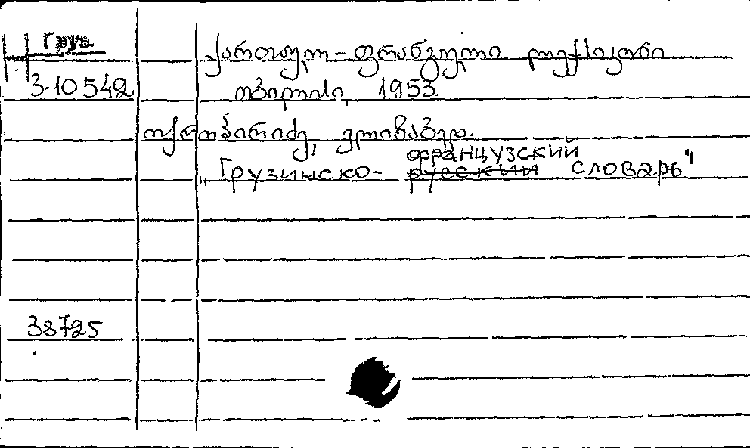 Груз.
ქართულ-ფრანგული ლექსიკონი
3-10542
თბილისი, 1953
ოქროპირიძე, ელიზაბედ.
французский
„Грузинско- русский словарь"
38725